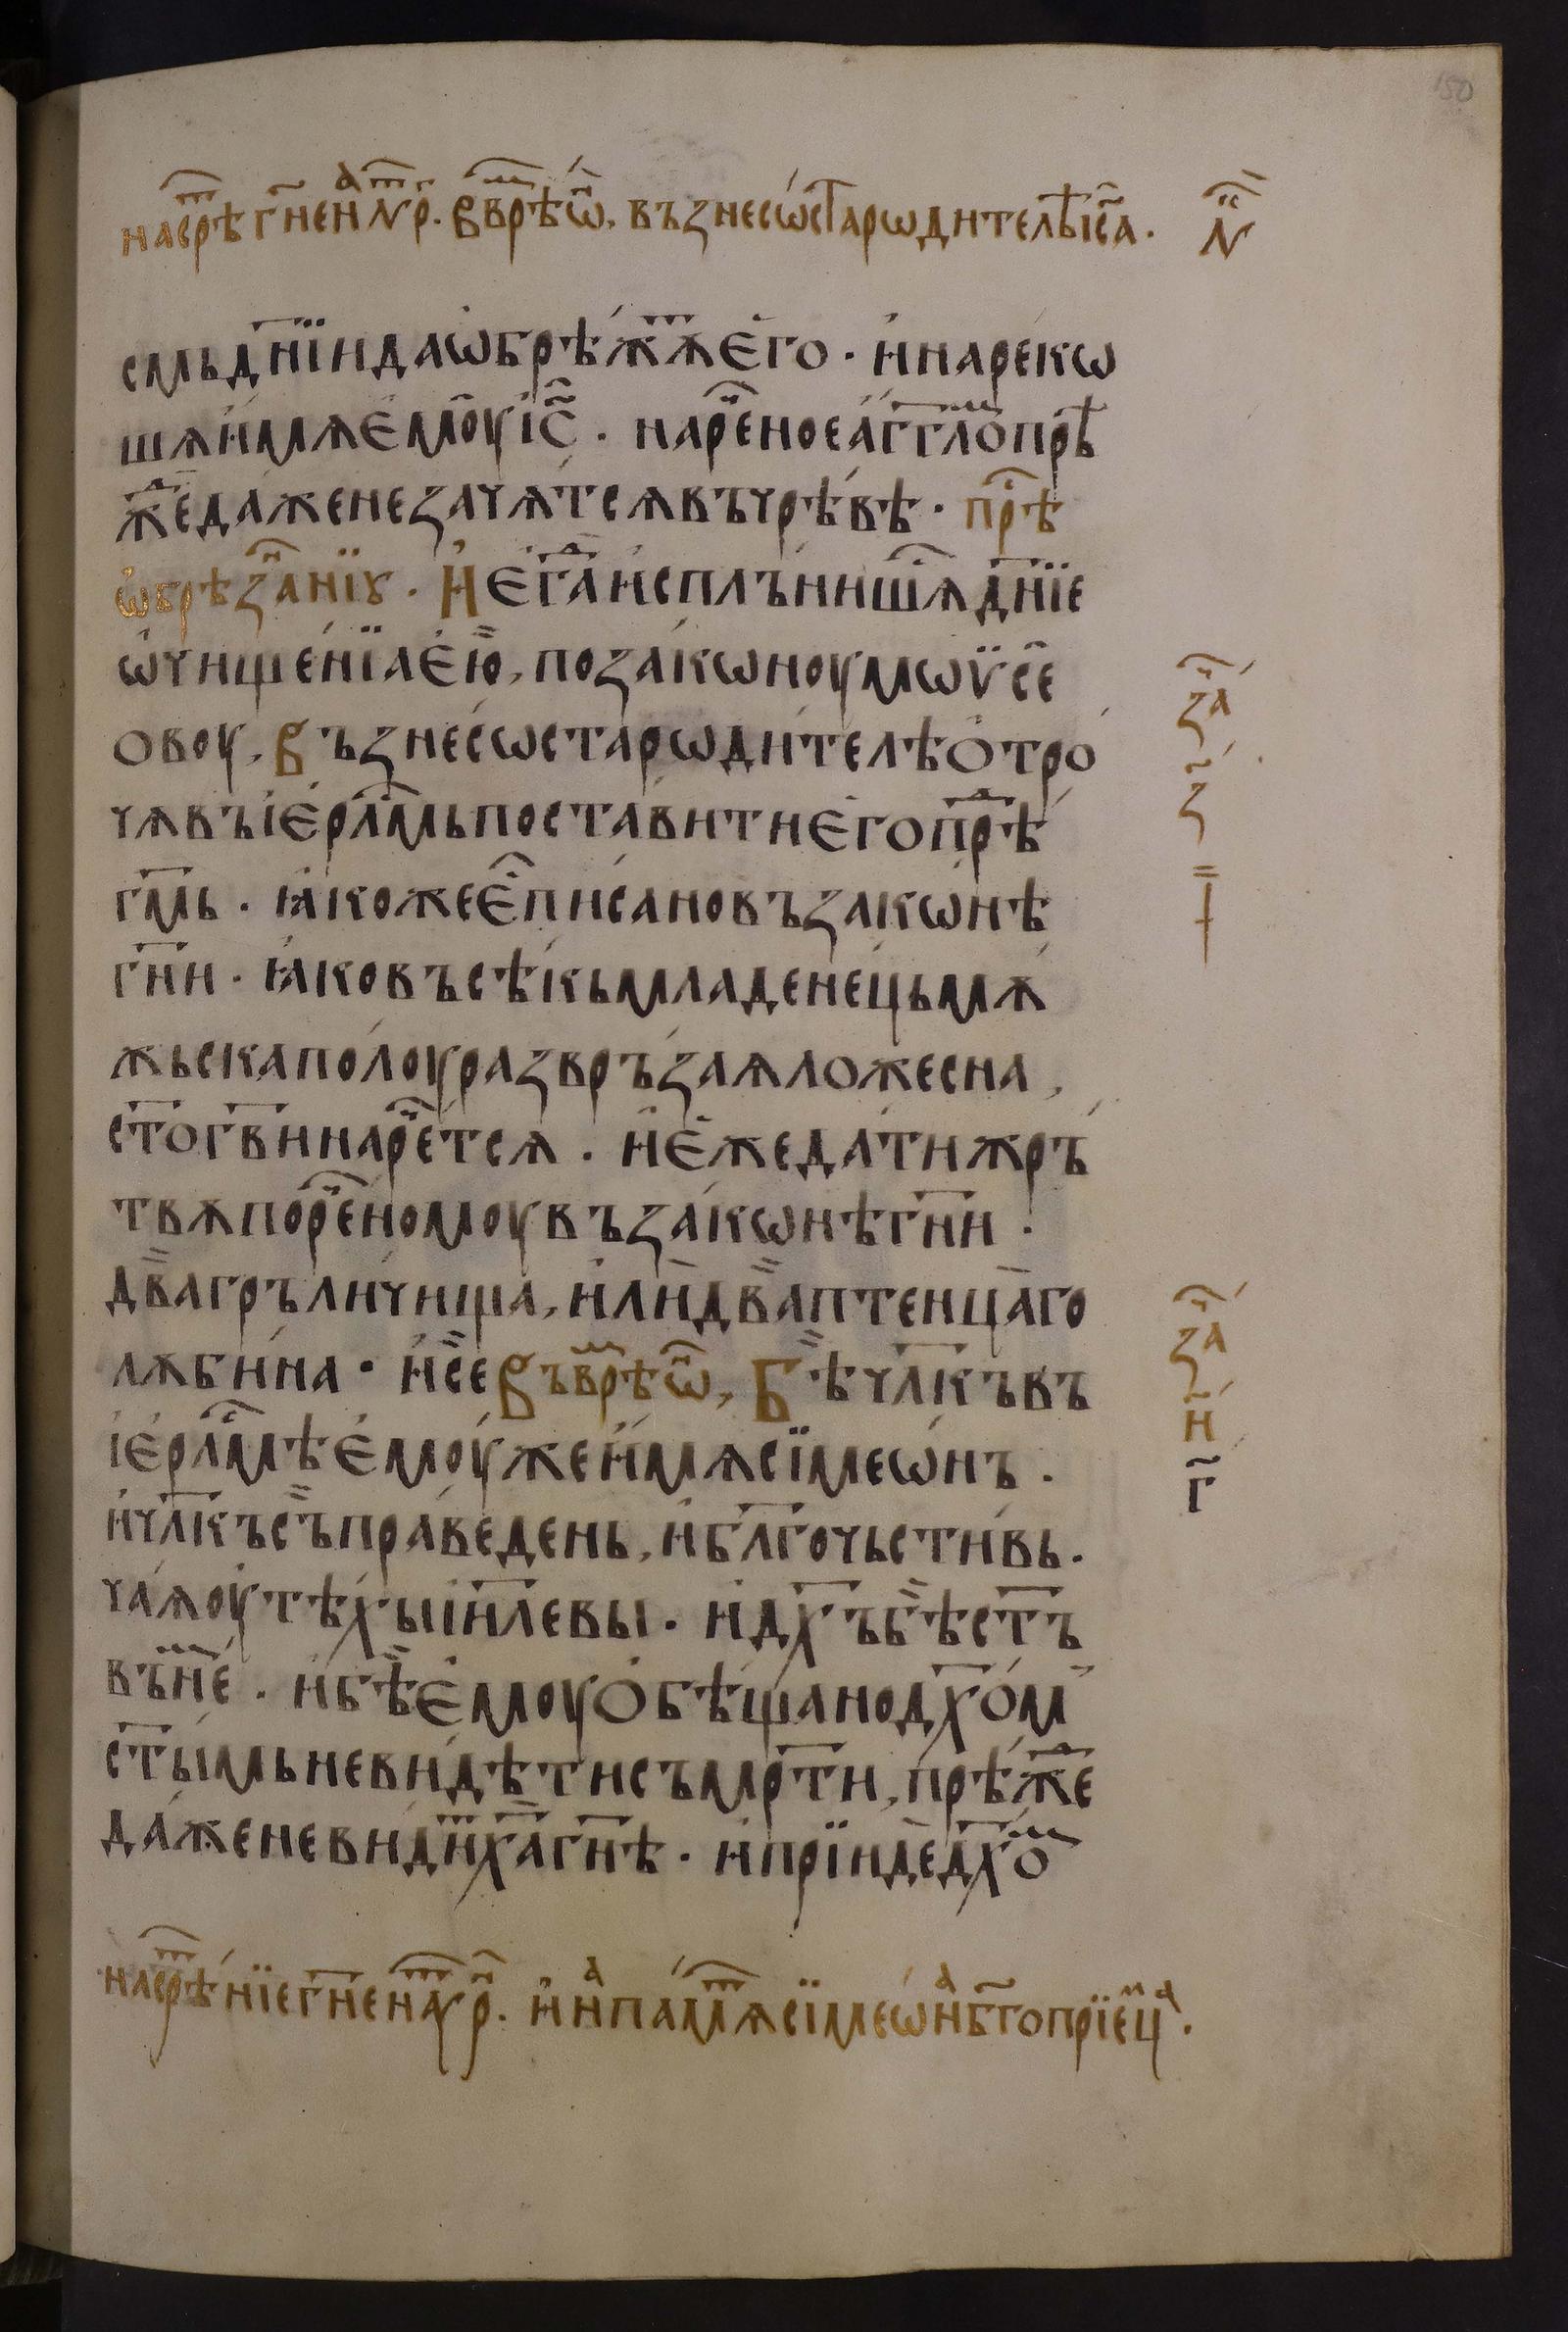 150
на срѣ гн҃е на ѵр. въ врѣ ѡ, възнесѡста рѡдителѣ іс҃а. н҃
смь дн҃їи да ѡбрѣжѫ его. и нарекѡ
шѧ имѧ емоу іс҃. нарⷱеное агг҃ломь прѣ
жⷣе даже не зачѧтсѧ въ чрѣвѣ. прѣ
ѡбрѣзанїꙋ. И егⷣа исплънишѧсѧ дн҃їе
ѡчищенїа ею, по закѡноу мѡѵсе
овоу, Възнесѡста рѡдителѣ отро
чѧ въ іерⷭлмь поставити его прѣⷣ
гм҃ь. ꙗкоже еⷭ писано въ закѡнѣ
гн҃и. ꙗко въсѣкь младенець мѫ
жьска полоу развръзаѧ ложесна,
ст҃о гв҃и нарⷱетсѧ. и еже дати жръ
твѫ по рⷱеномоу въ закѡнѣ гн҃и.
два гръличища, или два птенца го
лѫбина. и се въ врⷨѣ ѡⷩ, Бѣ чл҃къ въ
іерⷭлмѣ емоу же имѧ сїмеѡнъ.
и чл҃къ съ праведень, и бл҃гочьстивь.
чаѧ оутѣхы іи҃левы. и дх҃ъ бѣ ст҃ъ
въ неⷨ. и бѣ емоу обѣщано дх҃ом
ст҃ымь не видѣти съмр҃ти, прѣжⷣе
даже не видит х҃а гн҃ѣ. и прїиде дх҃оⷨ
за
з
за
и
г
на срѣⷮнїе гн҃е на ѵр. и на памⷮѧ сїмеѡна бг҃опрїеⷨца.